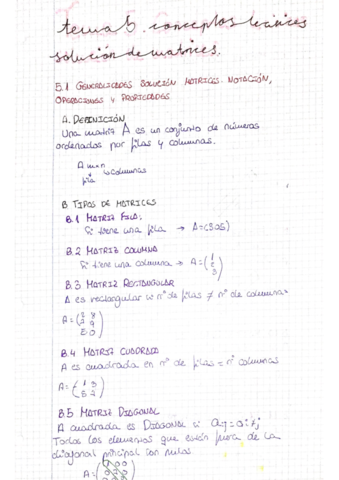 tema 5. conceptos teóricos
solución de matrices.
5.1 GENERALIDADES SOLUCIÓN MATRICES. NOTACIÓN,
OPERACIONES Y PROPIEDADES
A. DEFINICIÓN
Una matriz A es un conjunto de números
ordenados por filas y columnas.
A m×n
fila ↳ columnas
B TIPOS DE MATRICES
B.1 MATRIZ FILA:
Si tiene una fila → A=(305)
B.2 MATRIZ COLUMNA
Si tiene una columna → A=
B.3 MATRIZ RECTANGULAR
A es rectangular si nº de filas ≠ nº de columnas
A=
B.4 MATRIZ CUADRADA
A es cuadrada en nº de filas = nº columnas
A=
B.5 MATRIZ DIAGONAL
A cuadrada es DIAGONAL si
Todos los elementos que estén fuera de la
diagonal principal son nulos.
A=